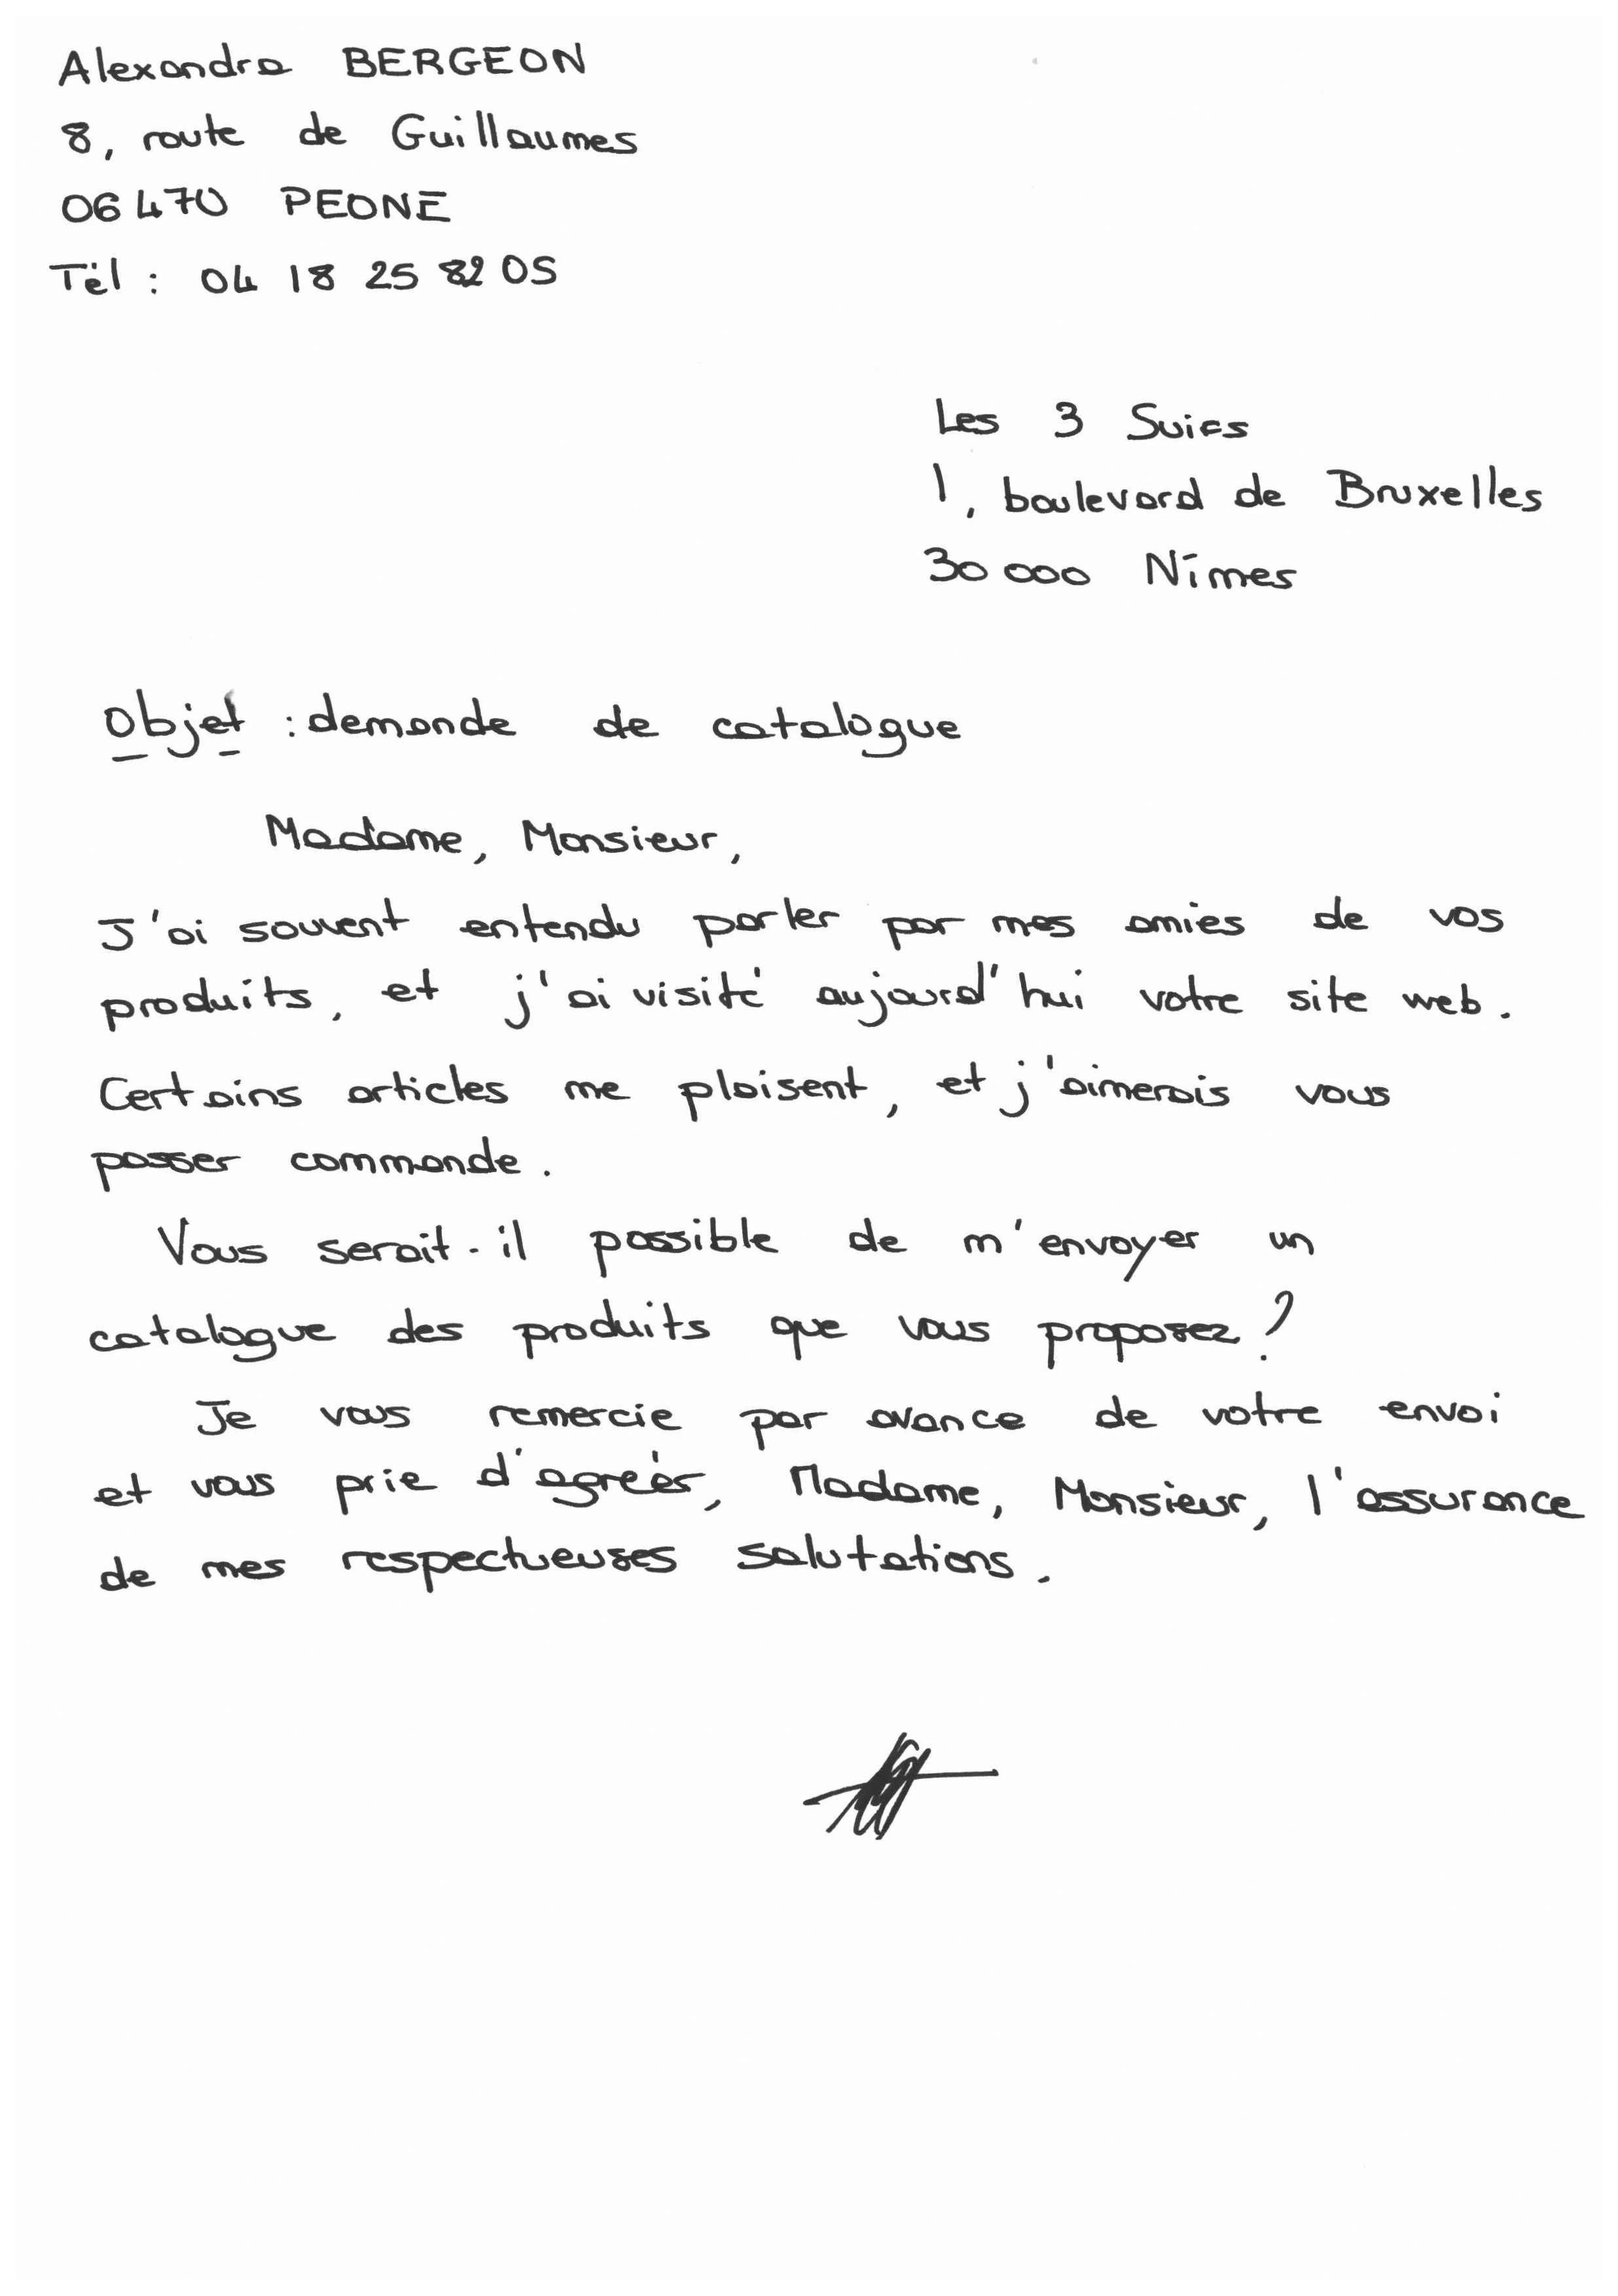 Alexandra BERGEON
8, route de Guillaumes
06470 PEONE
Tél : 04 18 25 82 05
Les 3 Suifs
1, boulevard de Bruxelles
30 000 Nîmes
Objet : demande de catalogue
Madame, Monsieur,
J'ai souvent entendu parler par mes amies de vos
produits, et j'ai visité aujourd'hui votre site web.
Certains articles me plaisent, et j'aimerais vous
passer commande.
Vous serait-il possible de m'envoyer un
catalogue des produits que vous proposez ?
Je vous remercie par avance de votre envoi
et vous prie d'agréer, Madame, Monsieur, l'assurance
de mes respectueuses salutations.